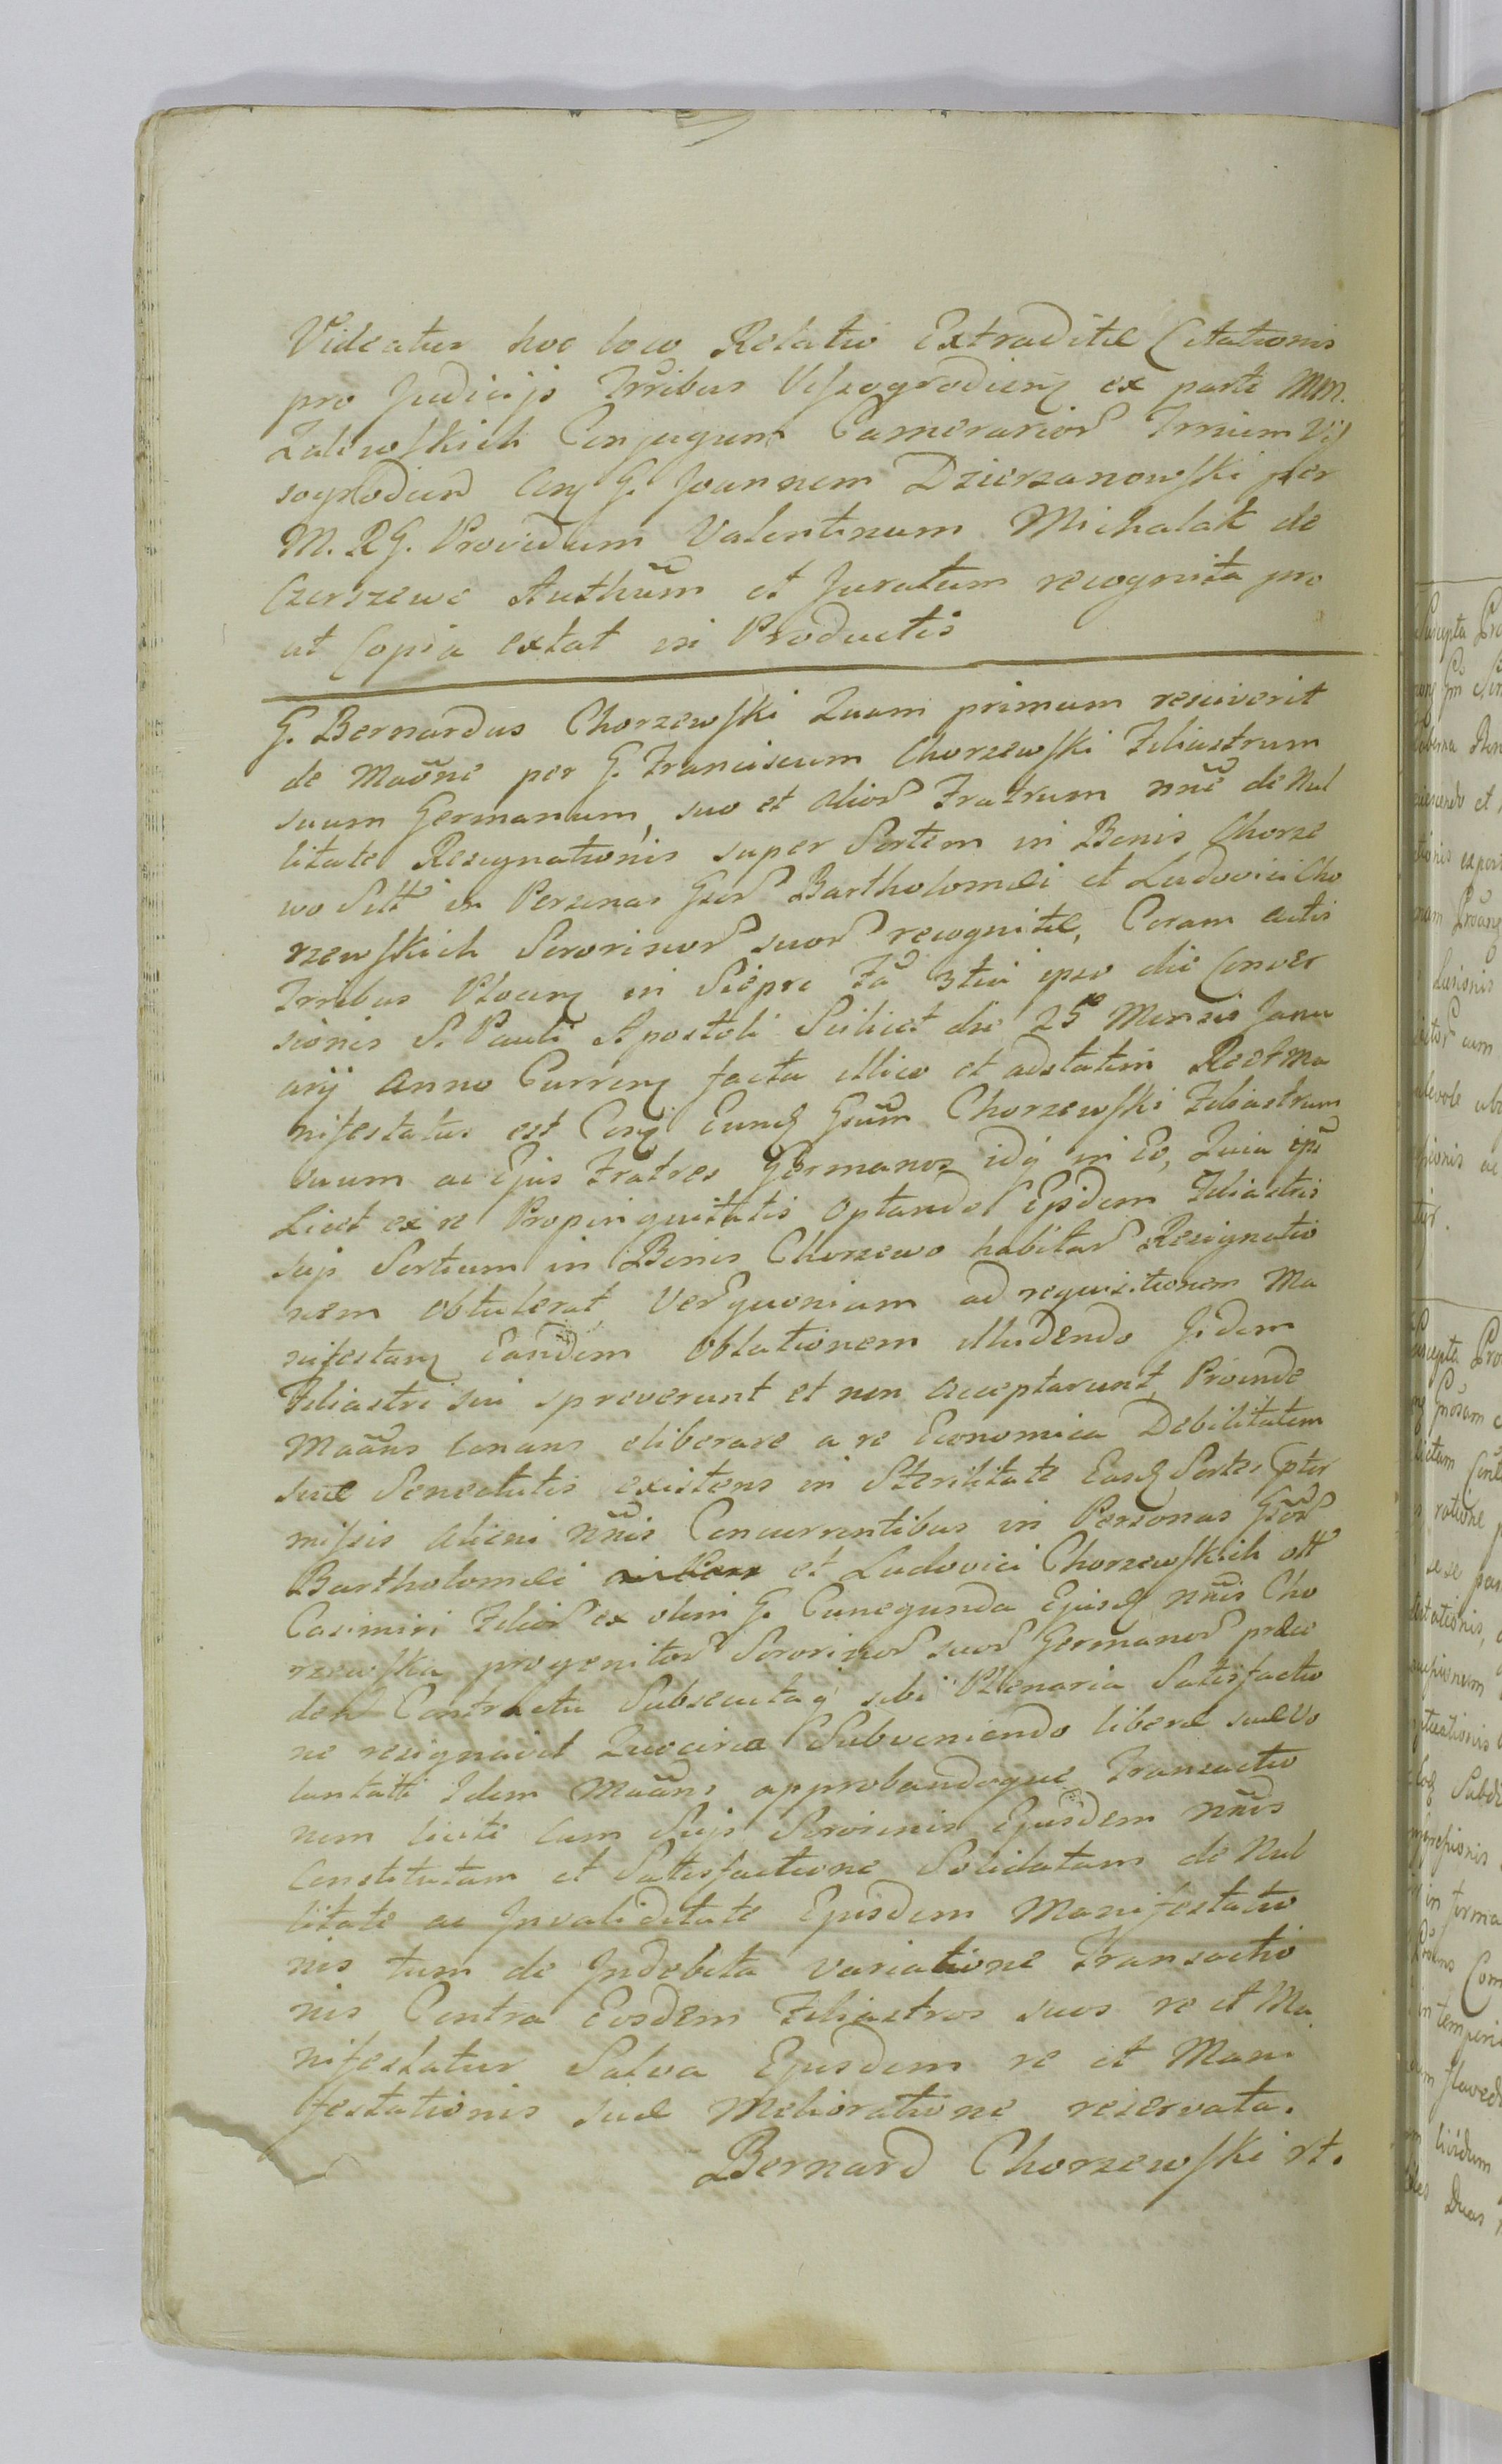 Videatur hoc loco Relatio Extraditæ Citationis
pro Judicijs Trribus Vissogrodien ex parte MM.
Zalewskich Conjugum Camerarior Trrium Vis
sogrodien Con G. Joannem Dzierzanowski per
M. RG. Providum Valentinum Michalak de
Czerszewo Authūm et Juratum recognita pro
ut Copia extat in Productis
G. Bernardus Chorzewski Quam primum resciverit
de Maōne per G. Franciscum Chorzewski Filiastrum
suum Germanum, suo et alior Fratrum nñe de Nul
litate Resignationis super Sortem in Bonis Chorze
wo Sitt in Personas Gser Bartholomæi et Ludovici Cho
rzewskich Sororinor suor recognitæ, Coram actis
Trribus Plocen in Sieprc Fā 3tia ipso die Conver
sionis S. Pauli Apostoli Scilicet die 25 Mensis Janu
arij Anno Curren facta illico et adstatim Re et Ma
nifestatus est Con Eund Gsum Chorzewski Filiastrum
suum ac Ejus Fratres Germanos idq in Eo, Quia ipsi
Licet ex re Propinquitatis optandæ Eisdem Filiastris
suis Sortium in Bonis Chorzewo habitar Resignatio
nem obtulerat Ver quoniam ad requisitionem Ma
nifestan Eandem Oblationem illudendo Iidem
Filiastri sui spreverunt et non acceptarunt, Proinde
Maāns conans eliberare a re Economica Debilitatem
suæ Senectutis existens in Sterilitate Easd Sortes Ptr
missis alieni nñis Concurrentibus in Personas Gsor
Bartholomæi et Ludovici Chorzewskich olt
Casimiri Filior ex olim G. Cunegunda Ejusd nñis Cho
rzewska progenitor Sororinor suor Germanor præce
den Contractu Subsecutaq sibi Plenaria Satisfactio
ne resignavit Quocirca Subveniendo liberæ suæ Vo
luntati Idem Maāns approbandoque Transactio
nem licite cum Suis Sororinis Ejusdem nñis
Constitutam et Satisfactione Solidatam de Nul
litate ac Invaliditate Ejusdem Manifestatio
nis tum de Indebita variatione Transactio
nis Contra Eosdem Filiastros suos re et Ma
nifestatur Salva Ejusdem re et Mani
festationis suæ Melioratione reservata.
Bernard Chorzewski rt.